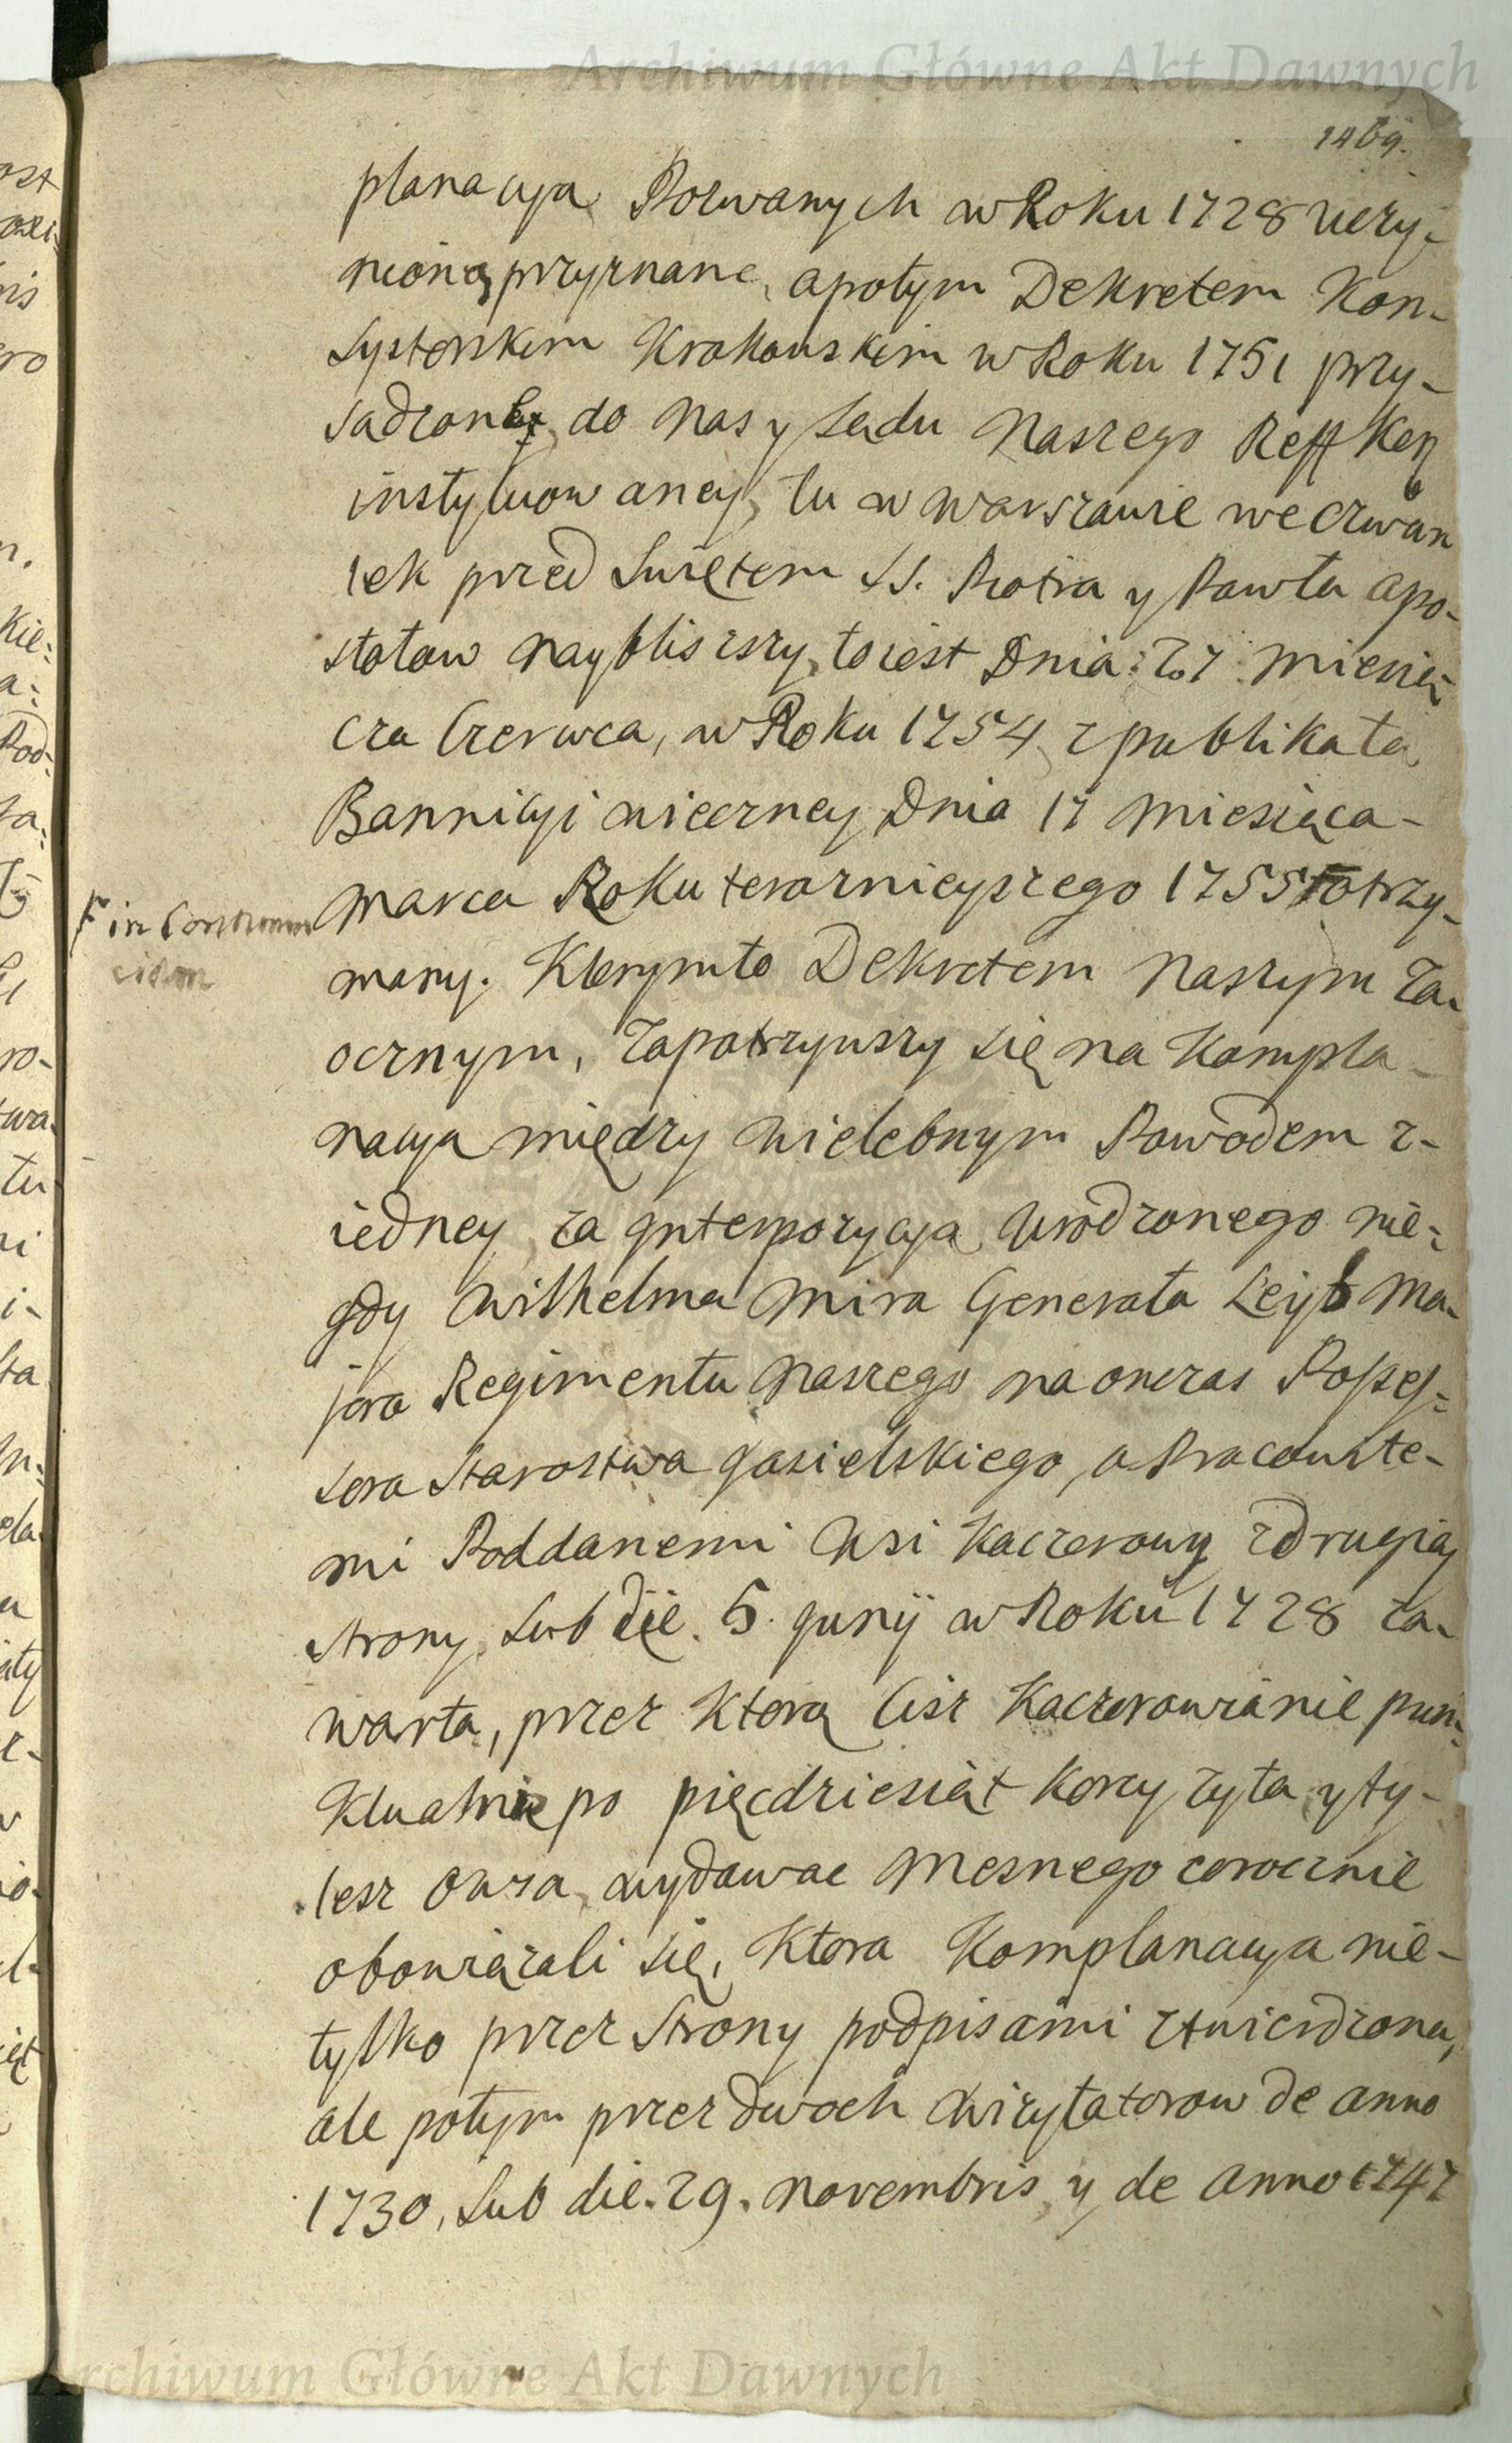 Archiwum Główne Akt Dawnych
1469.
planacyą Pozwanych w Roku 1728 uczy-
nioną przyznane, a potym Dekretem Kon-
systorskim Krakowskim w Roku 1751 przy-
sądzone, do nas y Sądu Naszego Reff Ken
instytuowaney, tu w Warszawie we czwar
tek przed Swiętem SS. Piotra y Pawła Apo-
stołow naybliższy, to iest Dnia 27 Miesią-
cza Czerwca, w Roku 1754 z publikatą
Bannicyi wieczney Dnia 17 Miesiąca
Marca Roku teraznieyszego 1755 F otrzy-
F in Contumam
ciam
many. Ktorymto Dekretem Naszym Za-
ocznym, Zapatrzywszy się na Kompla-
nacyą między Wielebnym Powodem z
iedney, za Jnterpozycyą Urodzonego nie-
gdy Wilhelma Mira Generała Leyb Ma-
jora Regimentu Naszego na owczas Possess-
sora Starostwa Jasielskiego, a Pracowite-
mi Poddanemi Wsi Kaczorowy z drugiey
strony, Sub die. 5. Junij w Roku 1728 za-
warta, przez ktorą Ciż Kaczorowianie pun-
ktualnie po pięcdziesiąt Korcy Zyta y ty-
lesz Owsa, wydawac Mesznego corocznie
obowiązali się, Ktora Komplanacya nie-
tylko przez Strony podpisami ztwierdzona,
ale potym przez dwoch Wizytatorow de anno
1730, Sub die. 29. Novembris, y de Anno 1747
Archiwum Główne Akt Dawnych